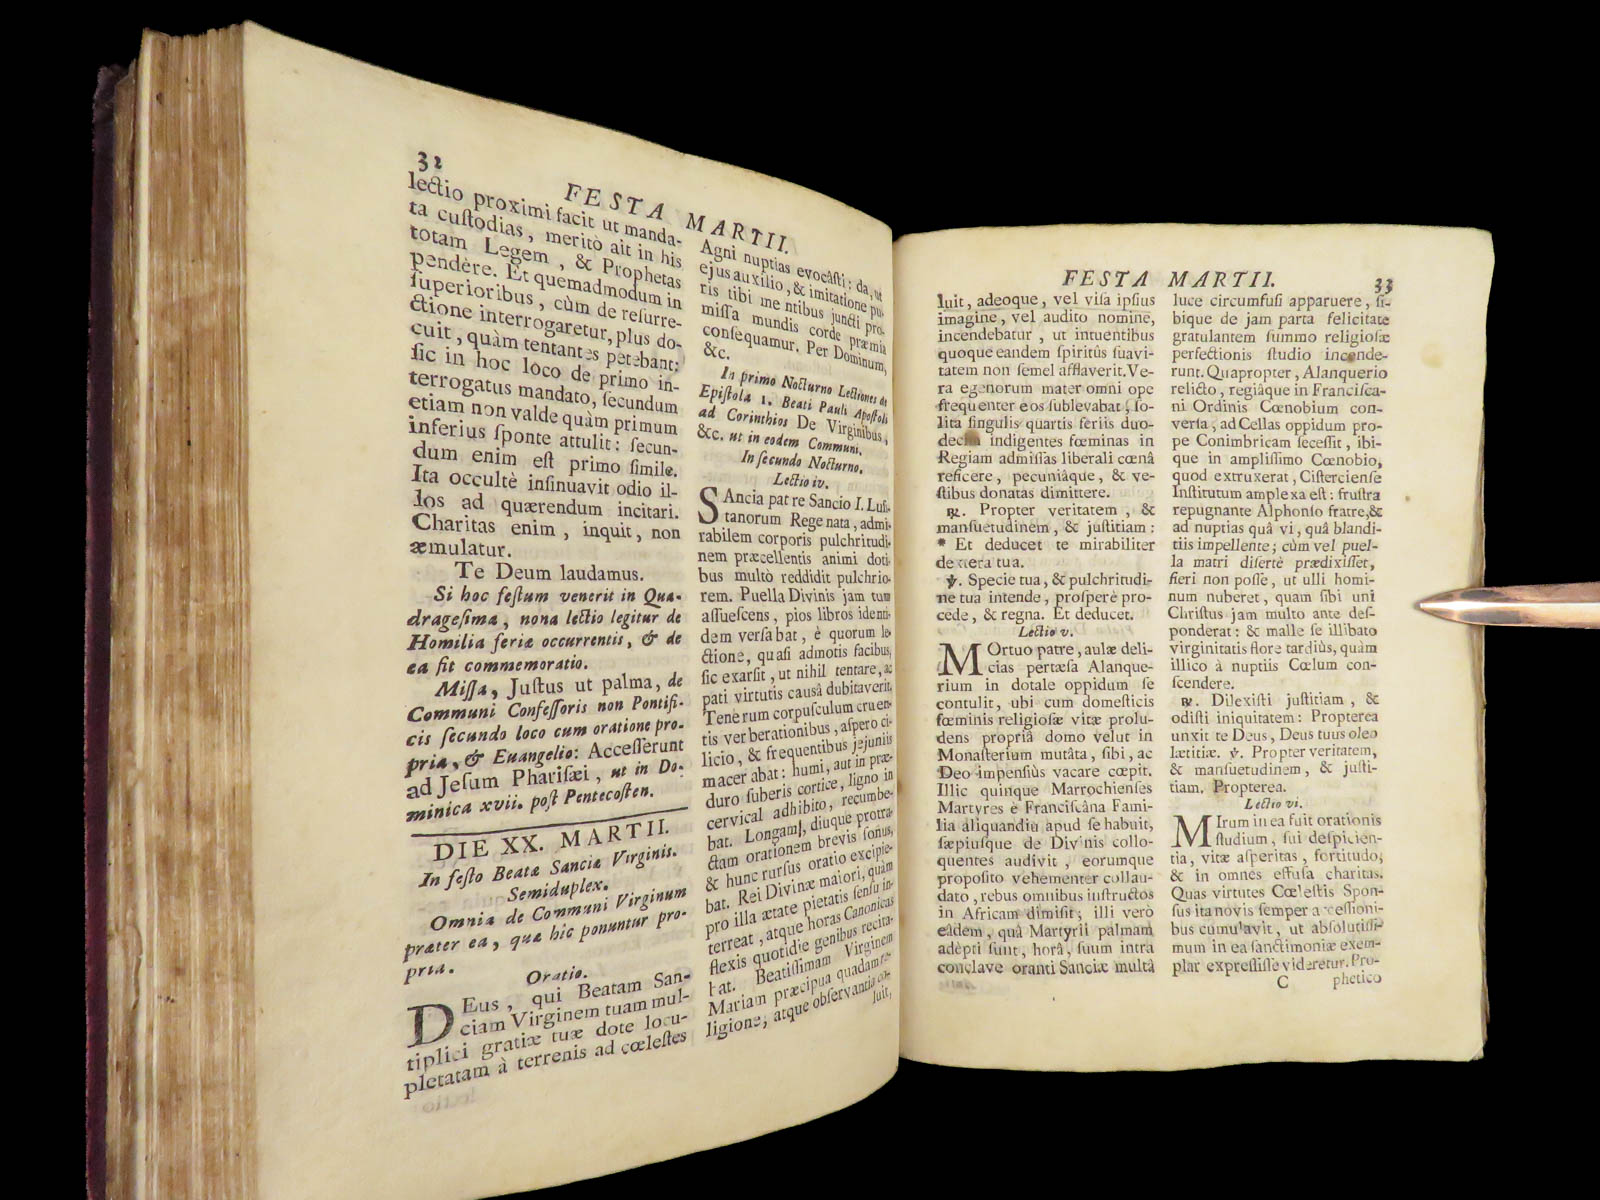 32
FESTA MARTII.
lectio proximi facit ut manda-
ta cuſtodias, meritò ait in his
totam Legem, & Prophetas
pendère. Et quemadmodum in
ſuperioribus, cùm de reſurre-
ctione interrogaretur, plus do-
cuit, quàm tentantes petebant;
ſic in hoc loco de primo in-
terrogatus mandato, ſecundum
etiam non valde quàm primum
inferius ſponte attulit: ſecun-
dum enim eſt primo ſimile.
Ita occultè inſinuavit odio il-
los ad quærendum incitari.
Charitas enim, inquit, non
æmulatur.
Te Deum laudamus.
Si hoc feſtum venerit in Qua-
drageſima, nona lectio legitur de
Homilia feriæ occurrentis, & de
ea fit commemoratio.
Miſſa, Juſtus ut palma, de
Communi Confeſſoris non Pontifi-
cis ſecundo loco cum oratione pro-
pria, & Euangelio: Acceſſerunt
ad Jeſum Phariſæi, ut in Do-
minica xvii. poſt Pentecoſten.
DIE XX. MARTII.
In feſto Beatæ Sanciæ Virginis.
Semiduplex.
Omnia de Communi Virginum
præter ea, quæ hic ponuntur pro-
pria.
Oratio.
DEus, qui Beatam San-
ciam Virginem tuam mul-
tiplici gratiæ tuæ dote locu-
pletatam à terrenis ad cœleſtes
Agni nuptias evocâſti: da, ut
ejus auxilio, & imitatione pu-
ris tibi mentibus juncti pro-
miſſa mundis corde præmia
conſequamur. Per Dominum,
&c.
In primo Nocturno Lectiones de
Epiſtola 1. Beati Pauli Apoſtoli
ad Corinthios De Virginibus,
&c. ut in eodem Communi.
In ſecundo Nocturno.
Lectio iv.
SAncia patre Sancio I. Luſi-
tanorum Rege nata, admi-
rabilem corporis pulchritudi-
nem præcellentis animi doti-
bus multò reddidit pulchrio-
rem. Puella Divinis jam tum
aſſueſcens, pios libros identi-
dem verſabat, è quorum le-
ctione, quaſi admotis facibus,
ſic exarſit, ut nihil tentare, ac
pati virtutis causâ dubitaverit.
Tenerum corpuſculum cruen-
tis verberationibus, aſpero ci-
licio, & frequentibus jejuniis
macerabat: humi, aut in præ-
duro ſuberis cortice, ligno in
cervical adhibito, recumbe-
bat. Longam, diuque protra-
ctam orationem brevis ſomus,
& hunc rurſus oratio excipie-
bat. Rei Divinæ maiori, quàm
pro illa ætate pietatis ſenſu in-
terreat, atque horas Canonicas
flexis quotidie genibus recita-
bat. Beatiſſimam Virginem
Mariam præcipua quadam re-
ligione, atque obſervantia co-
luit,
FESTA MARTII.
33
luit, adeoque, vel viſa ipſius
imagine, vel audito nomine,
incendebatur, ut intuentibus
quoque eandem ſpiritûs ſuavi-
tatem non ſemel afflaverit. Ve-
ra egenorum mater omni ope
frequenter eos ſublevabat, ſo-
lita ſingulis quartis feriis duo-
decim indigentes fœminas in
Regiam admiſſas liberali cœnâ
reficere, pecuniâque, & ve-
ſtibus donatas dimittere.
℟. Propter veritatem, &
manſuetudinem, & juſtitiam:
* Et deducet te mirabiliter
dextera tua.
℣. Specie tua, & pulchritudi-
ne tua intende, proſperè pro-
cede, & regna. Et deducet.
Lectio v.
MOrtuo patre, aulæ deli-
cias pertæſa Alanque-
rium in dotale oppidum ſe
contulit, ubi cum domeſticis
fœminis religioſæ vitæ prolu-
dens propriâ domo velut in
Monaſterium mutâta, ſibi, ac
Deo impenſiùs vacare cœpit.
Illic quinque Marrochienſes
Martyres è Franciſcâna Fami-
lia aliquandiu apud ſe habuit,
ſæpiuſque de Divinis collo-
quentes audivit, eorumque
propoſito vehementer collau-
dato, rebus omnibus inſtructos
in Africam dimiſit; illi verò
eâdem, quâ Martyrii palmam
adèpti ſunt, horâ, ſuum intra
conclave oranti Sanciæ multâ
luce circumfuſi apparuere, ſi-
bique de jam parta felicitate
gratulantem ſummo religioſæ
perfectionis ſtudio incende-
runt. Quapropter, Alanquerio
relicto, regiâque in Franciſca-
ni Ordinis Cœnobium con-
verſa, ad Cellas oppidum pro-
pe Conimbricam ſeceſſit, ibi-
que in ampliſſimo Cœnobio,
quod extruxerat, Ciſtercienſe
Inſtitutum amplexa eſt: fruſtra
repugnante Alphonſo fratre, &
ad nuptias quâ vi, quâ blandi-
tiis impellente; cùm vel puel-
la matri diſertè prædixiſſet,
fieri non poſſe, ut ulli homi-
num nuberet, quam ſibi uni
Chriſtus jam multo ante deſ-
ponderat: & malle ſe illibato
virginitatis flore tardiùs, quàm
illico à nuptiis Cœlum con-
ſcendere.
℟. Dilexiſti juſtitiam, &
odiſti iniquitatem: Propterea
unxit te Deus, Deus tuus oleo
lætitiæ. ℣. Propter veritatem,
& manſuetudinem, & juſti-
tiam. Propterea.
Lectio vi.
MIrum in ea fuit orationis
ſtudium, ſui deſpicien-
tia, vitæ aſperitas, fortitudo,
& in omnes effuſa charitas.
Quas virtutes Cœleſtis Spon-
ſus ita novis ſemper acceſſioni-
bus cumulavit, ut abſolutiſſi-
mum in ea ſanctimoniæ exem-
plar expreſſiſſe videretur. Pro-
C phetico